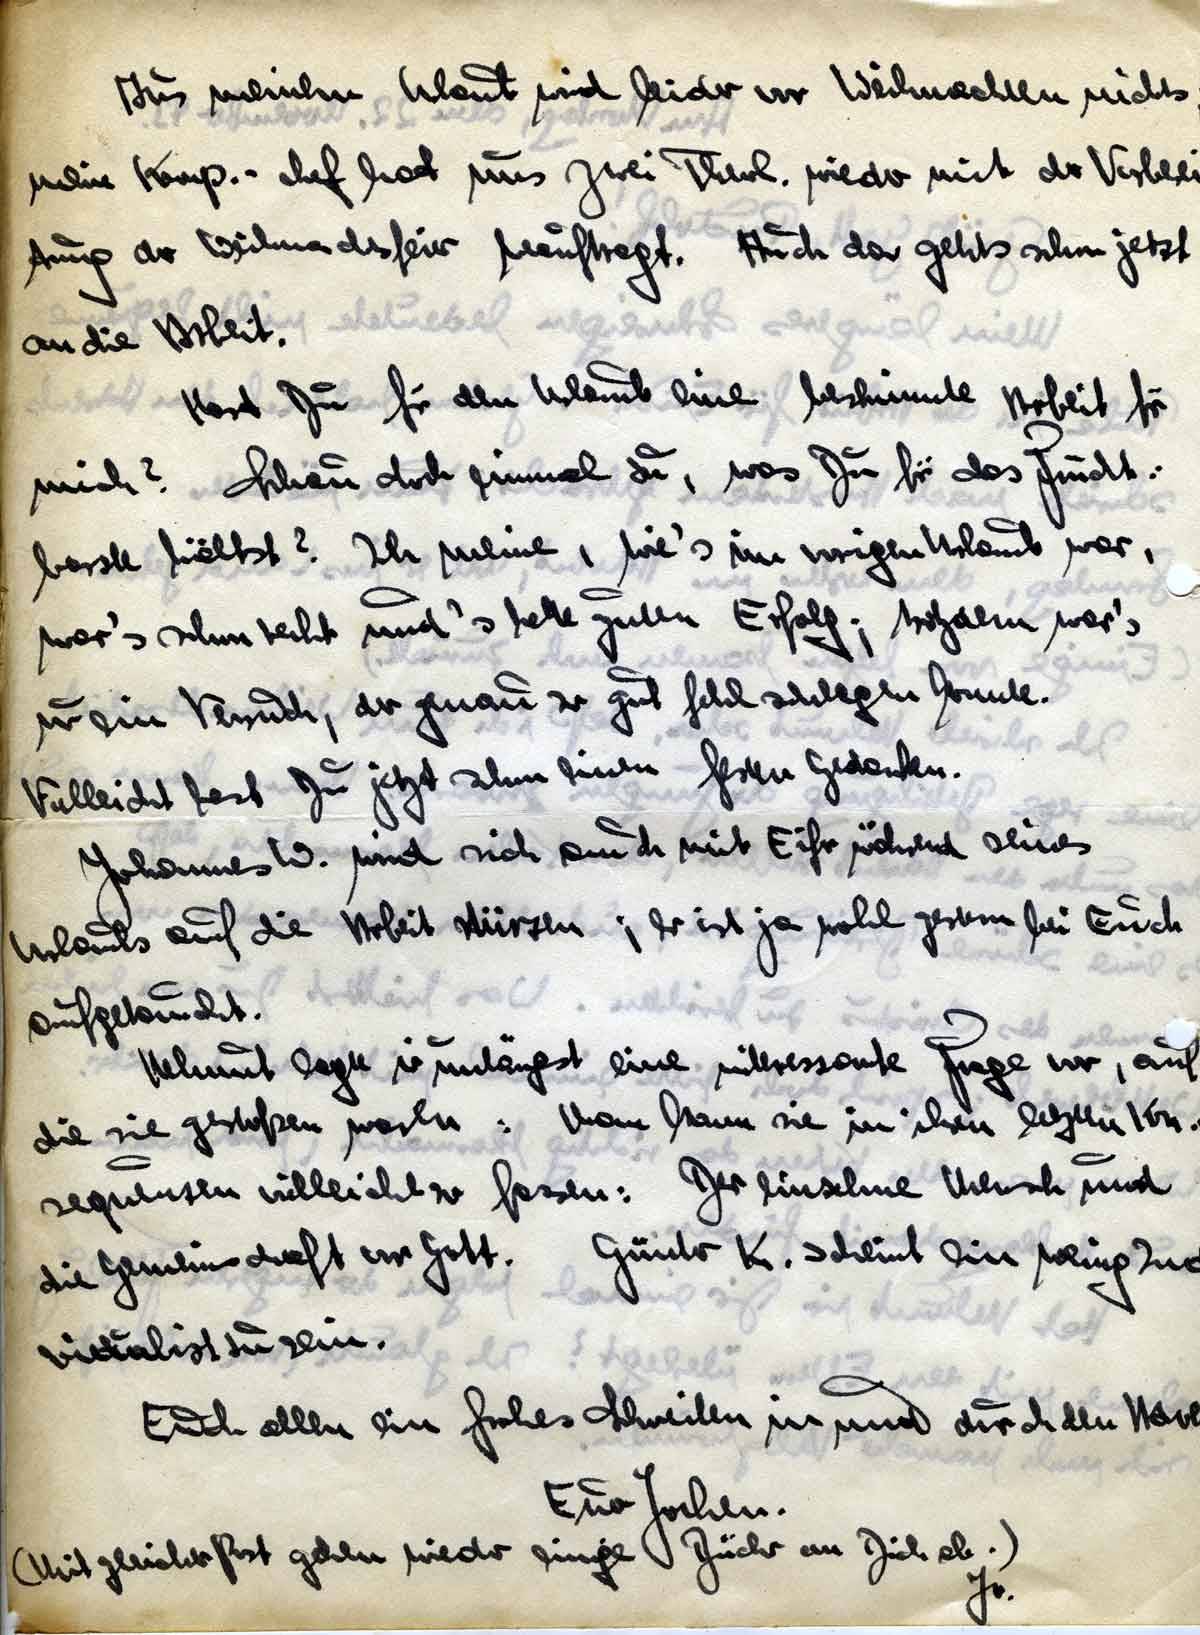 Aus meinem Urlaub wird leider vor Weihnachten nichts;
mein Komp.-chef hat uns zwei Theol. wieder mit der Vorberei
tung der Weihnachtsfeier beauftragt. Auch da gehts schon jetzt
an die Arbeit.
Hast Du für den Urlaub eine bestimmte Arbeit für
mich? Schau doch einmal zu, was Du für das
hältst? Ich meine, wie's im vorigen Urlaub war,
war's schon recht und's hatte guten Erfolg; trotzdem war's
nur ein Versuch, der genau so gut fehl schlagen konnte.
Vielleicht hast Du jetzt schon einen festen Gedanken.
Johannes W. wird sich auch mit Eifer während seines
Urlaubs auf die Arbeit stürzen; er ist ja wohl gestern bei Euch
aufgetaucht.
Helmut legte mir unlängst eine interessante Frage vor, auf
die sie gestoßen waren: Man kann sie in ihren letzten Kon-
sequenzen vielleicht so fassen: Der einzelne Mensch und
die Gemeinschaft vor Gott. Günter K. scheint ein wenig Indi
vidualist zu sein.
Euch allen ein frohes Schreiten in und durch den
Euer Jochen.
(Mit gleicher Post gehen wieder einige Bücher an Dich ab.)
Jo.